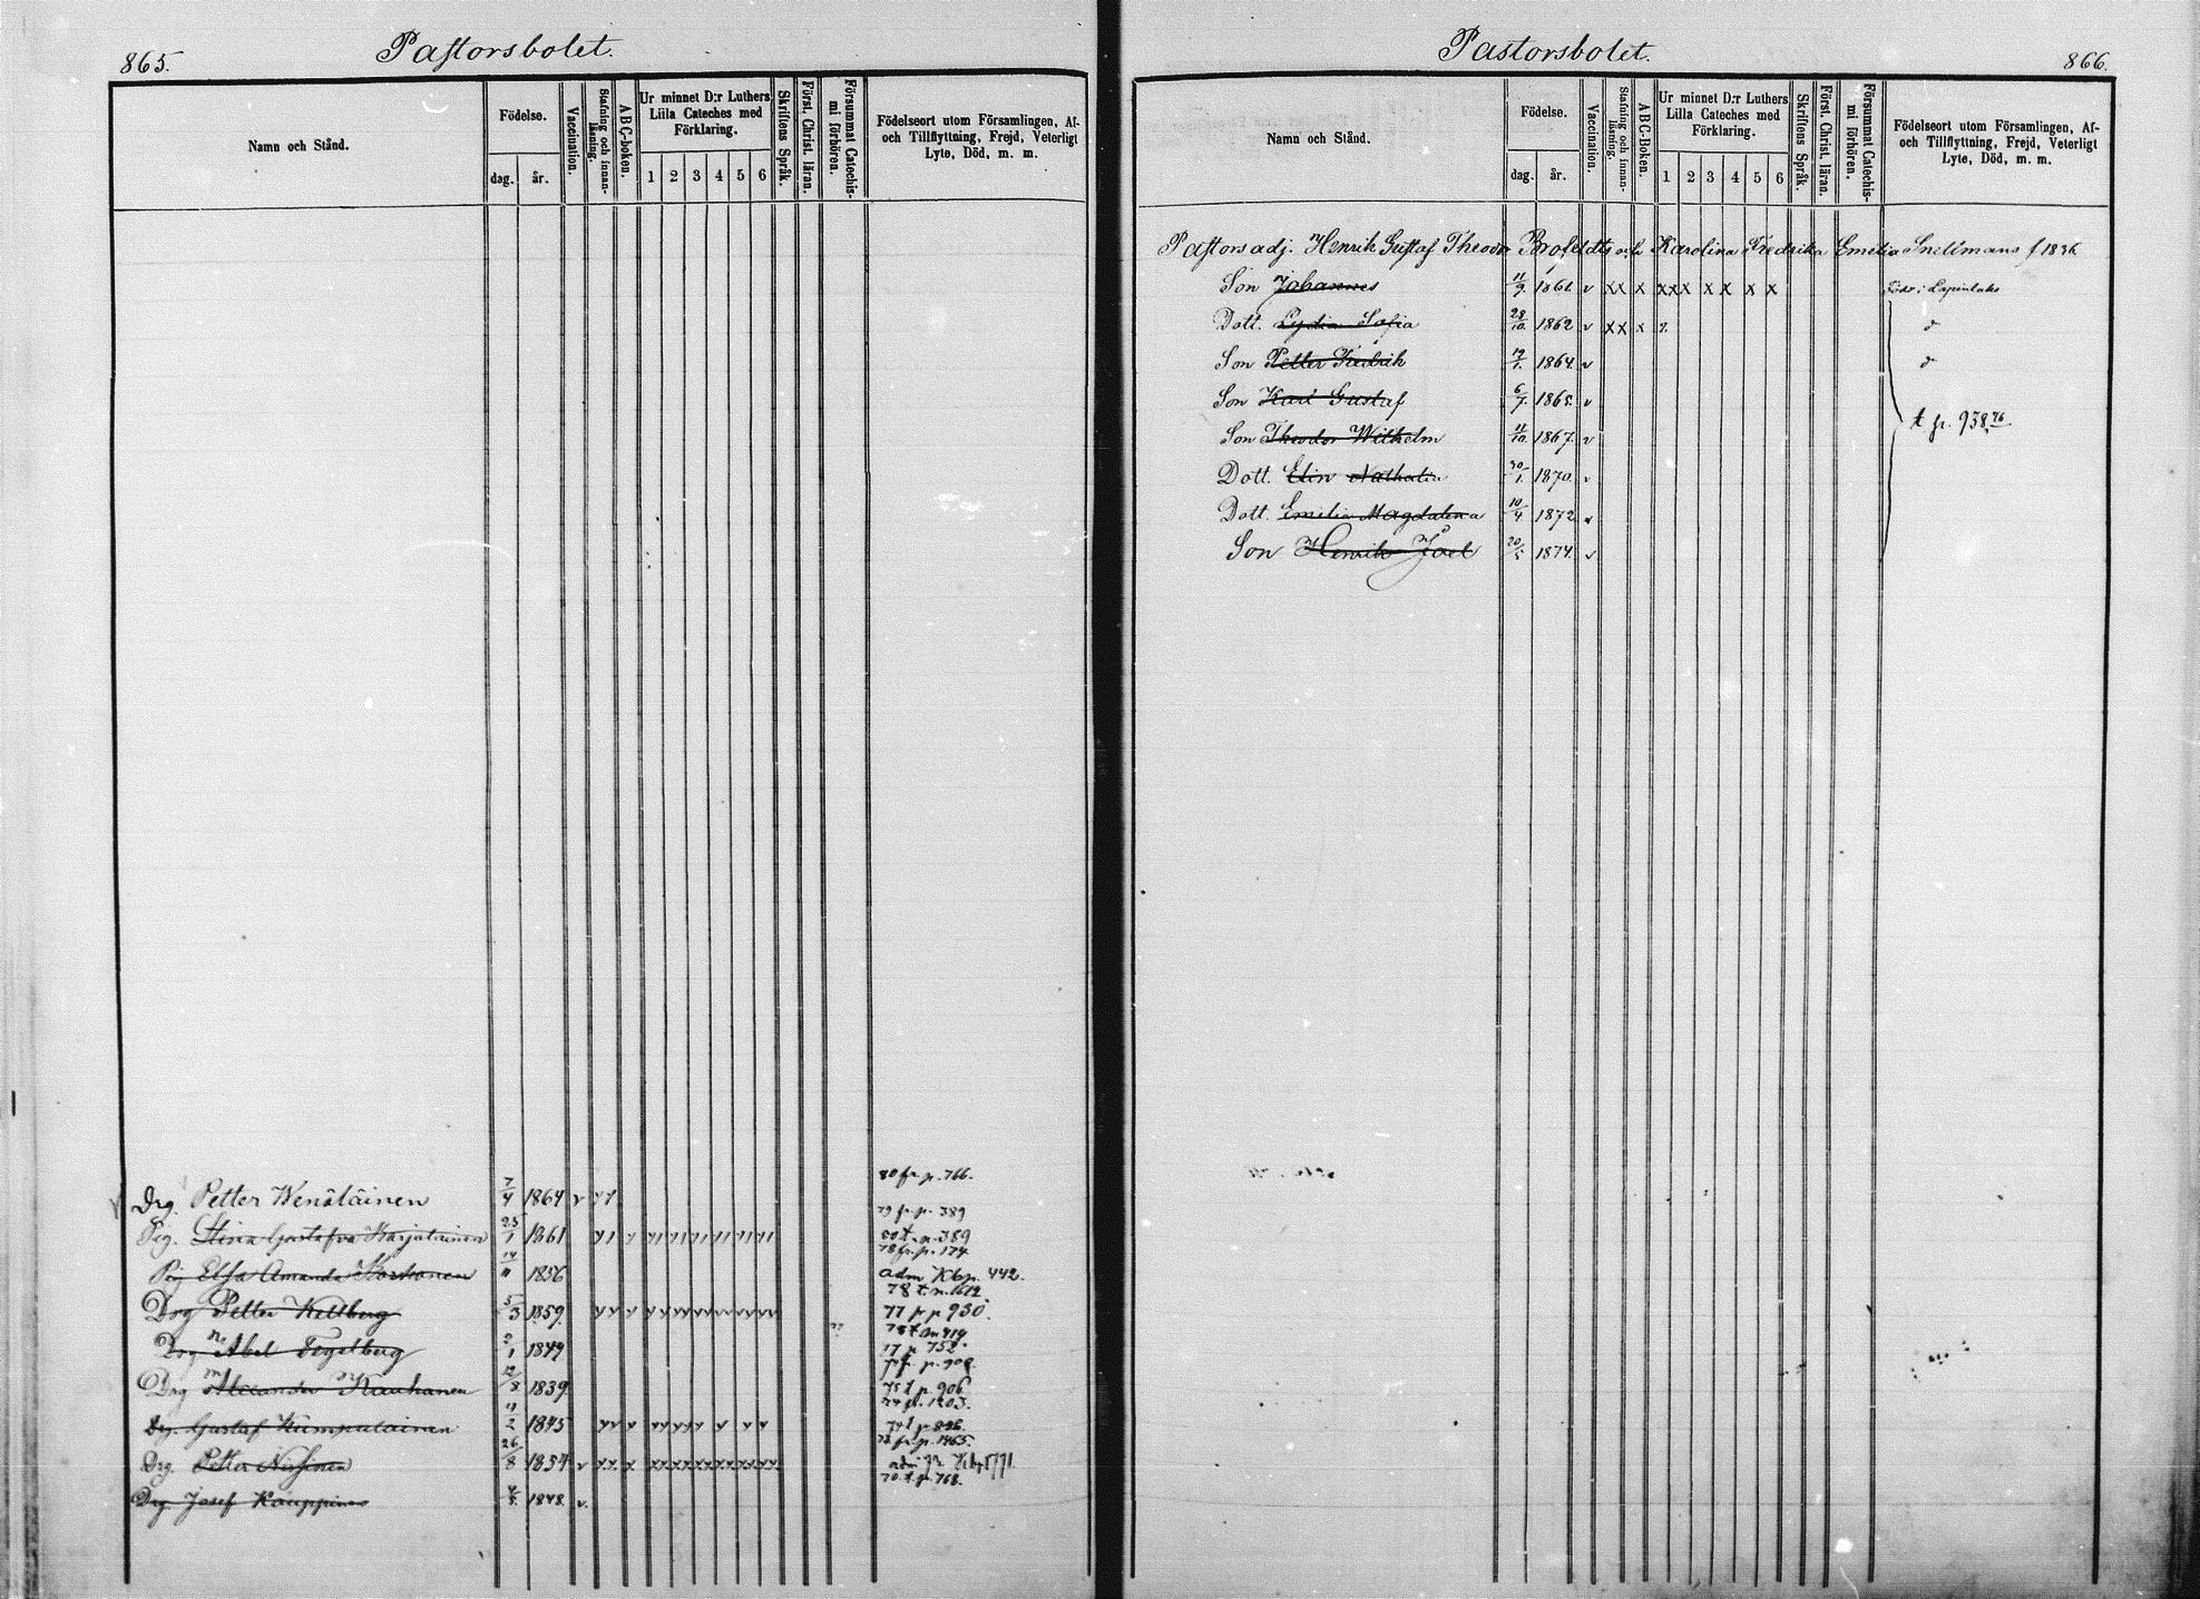 865.
Pastorsbolet.
Namn och Stånd.
Födelse.
dag.
år.
Vaccination.
Stafning och innan-läsning.
ABC-boken.
Ur minnet D:r Luthers
Lilla Cateches med
Förklaring.
1 2 3 4 5 6
Skriftens Språk.
Först. Christ. läran.
Försummat Catechis-
mi förhören.
Födelseort utom Församlingen, Af-
och Tillflyttning, Frejd, Veterligt
Lyte, Död, m. m.
80 fr. p. 766.
Drg. Petter Wenäläinen 7/4 1864 v
79 fr. p. 389
Pig. Stina Gustafva Karjalainen 23/1 1861
80 t. p. 389
78 fr. p. 174
Pig Elsa Amanda 14/11 1856 adm Kbp. 442.
Drg Petter Kellberg 5/3 1859. 77 fr p 930.
Drg Abel Fogelberg 2/1 1849 77 p 752.
Drg Alexander Kauhanen 12/8 1839 75 t p 906
74 p. 1203.
Drg. Gustaf Kumpulainen 11/2 1845
72 fr. p. 1465.
Drg. Petter Nissinen 26/8 1854 v
70. t. p. 768.
Drg Josef Kauppinen 4/5. 1848. v.
Pastorsbolet.
866.
Namn och Stånd.
Födelse.
dag.
år.
Vaccination.
Stafning och innan-läsning.
ABC-Boken.
Ur minnet D:r Luthers
Lilla Cateches med
Förklaring.
1 2 3 4 5 6
Skriftens Språk.
Först. Christ. läran.
Försummat Catechis-
mi förhören.
Födelseort utom Församlingen, Af-
och Tillflyttning, Frejd, Veterligt
Lyte, Död, m. m.
Pastorsadj. Henrik Gustaf Theodor Brofeldts och Karolina Fredrika Emelia Snellmans f 1836
Son Johannes 11/9. 1861. v xx x xxx x x x x Född i Lapinlaks
Dott. Lydia Sofia 28/10. 1862 v xx x
Son Petter Fredrik 19/1. 1864. v
Son Karl Gustaf 6/7. 1865. v
t p. 938. 76
Son Theodor Wilhelm 11/10. 1867. v
Dott. Elin Nathalia 30/1. 1870. v
Dott. Emelia Magdalena 10/4. 1872 v
Son Henrik Joel 20/5 1874. v